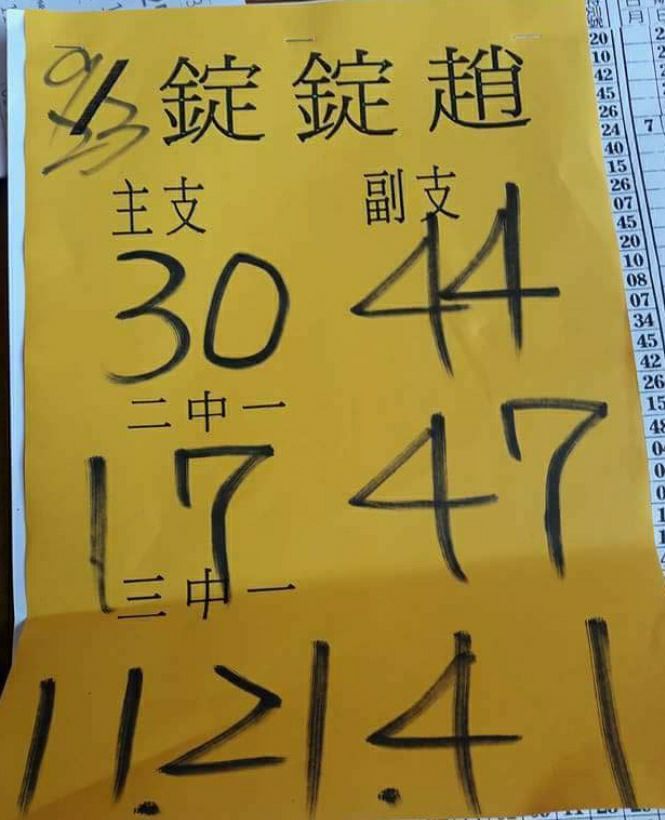 9/23 錠錠趙
主支 副支
30 44
二中一
17 47
三中一
11.21.41
20
10
42
45
26
24
40
15
26
07
45
20
10
08
07
34
45
42
26
15